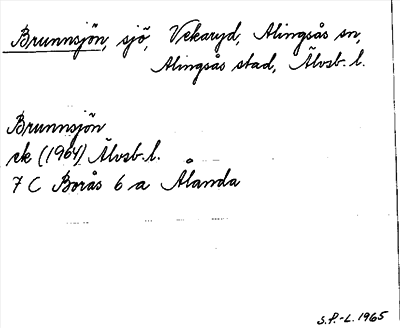 Brunnsjön, sjö, Vekaryd, Alingsås sn,
Alingsås stad, Älvsb. l.
Brunnsjön
ek (1964) Älvsb. l.
7 C Borås 6 a Ålanda
S.P.-L. 1965